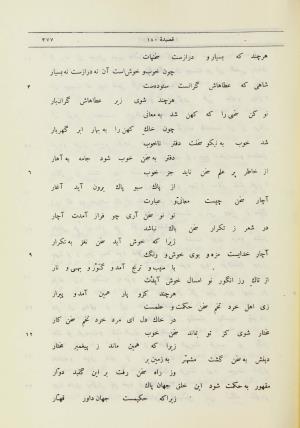 قصیدهٔ ۱۸۰
۳۷۷
هرچند که بسیار و درازست سخنهات
چون خوب و خوش است آن نه درازست نه بسیار
شاهی که عطاهاش گرانست ستوده‌ست
هرچند شوی زیر عطاهاش گرانبار
۳
نو کن سخنی را که کهن شد به معانی
چون خاک کهن را به بهار ابر گهربار
شد خوب به نیکو سخنت دفتر ناخوب
دفتر به سخن خوب شود جامه به آهار
از خاطر پر علم سخن ناید جز خوب
از پاک سبو پاک برون آید آغار
۶
آچار سخن چیست معانی و عبارت
نو نو سخن آری چو فراز آمدت آچار
در شعر ز تکرار سخن باک نباشد
زیرا که خوش آید سخن نغز به تکرار
آچار خدایست مزه و بوی خوش و رنگ
با سیب و ترنج آمد و گوز و بهی و نار
۹
از تاک رز انگور نو امسال خوش آیدت
هرچند کزو پار همین آمد و پیرار
زی اهل خرد تخم سخن حکمت و علمست
در خاک دل ای مرد خرد تخم سخن کار
مختار شوی گر تو بماند سخن خوب
زیرا که همین ماند ز پیغمبر مختار
۱۲
دینش به سخن گشت مشهر به زمین بر
وز راه سخن رفت بر این گنبد دوار
مقهور به حکمت شود این خلق جهان پاک
زیرا که حکیمست جهان داور قهار